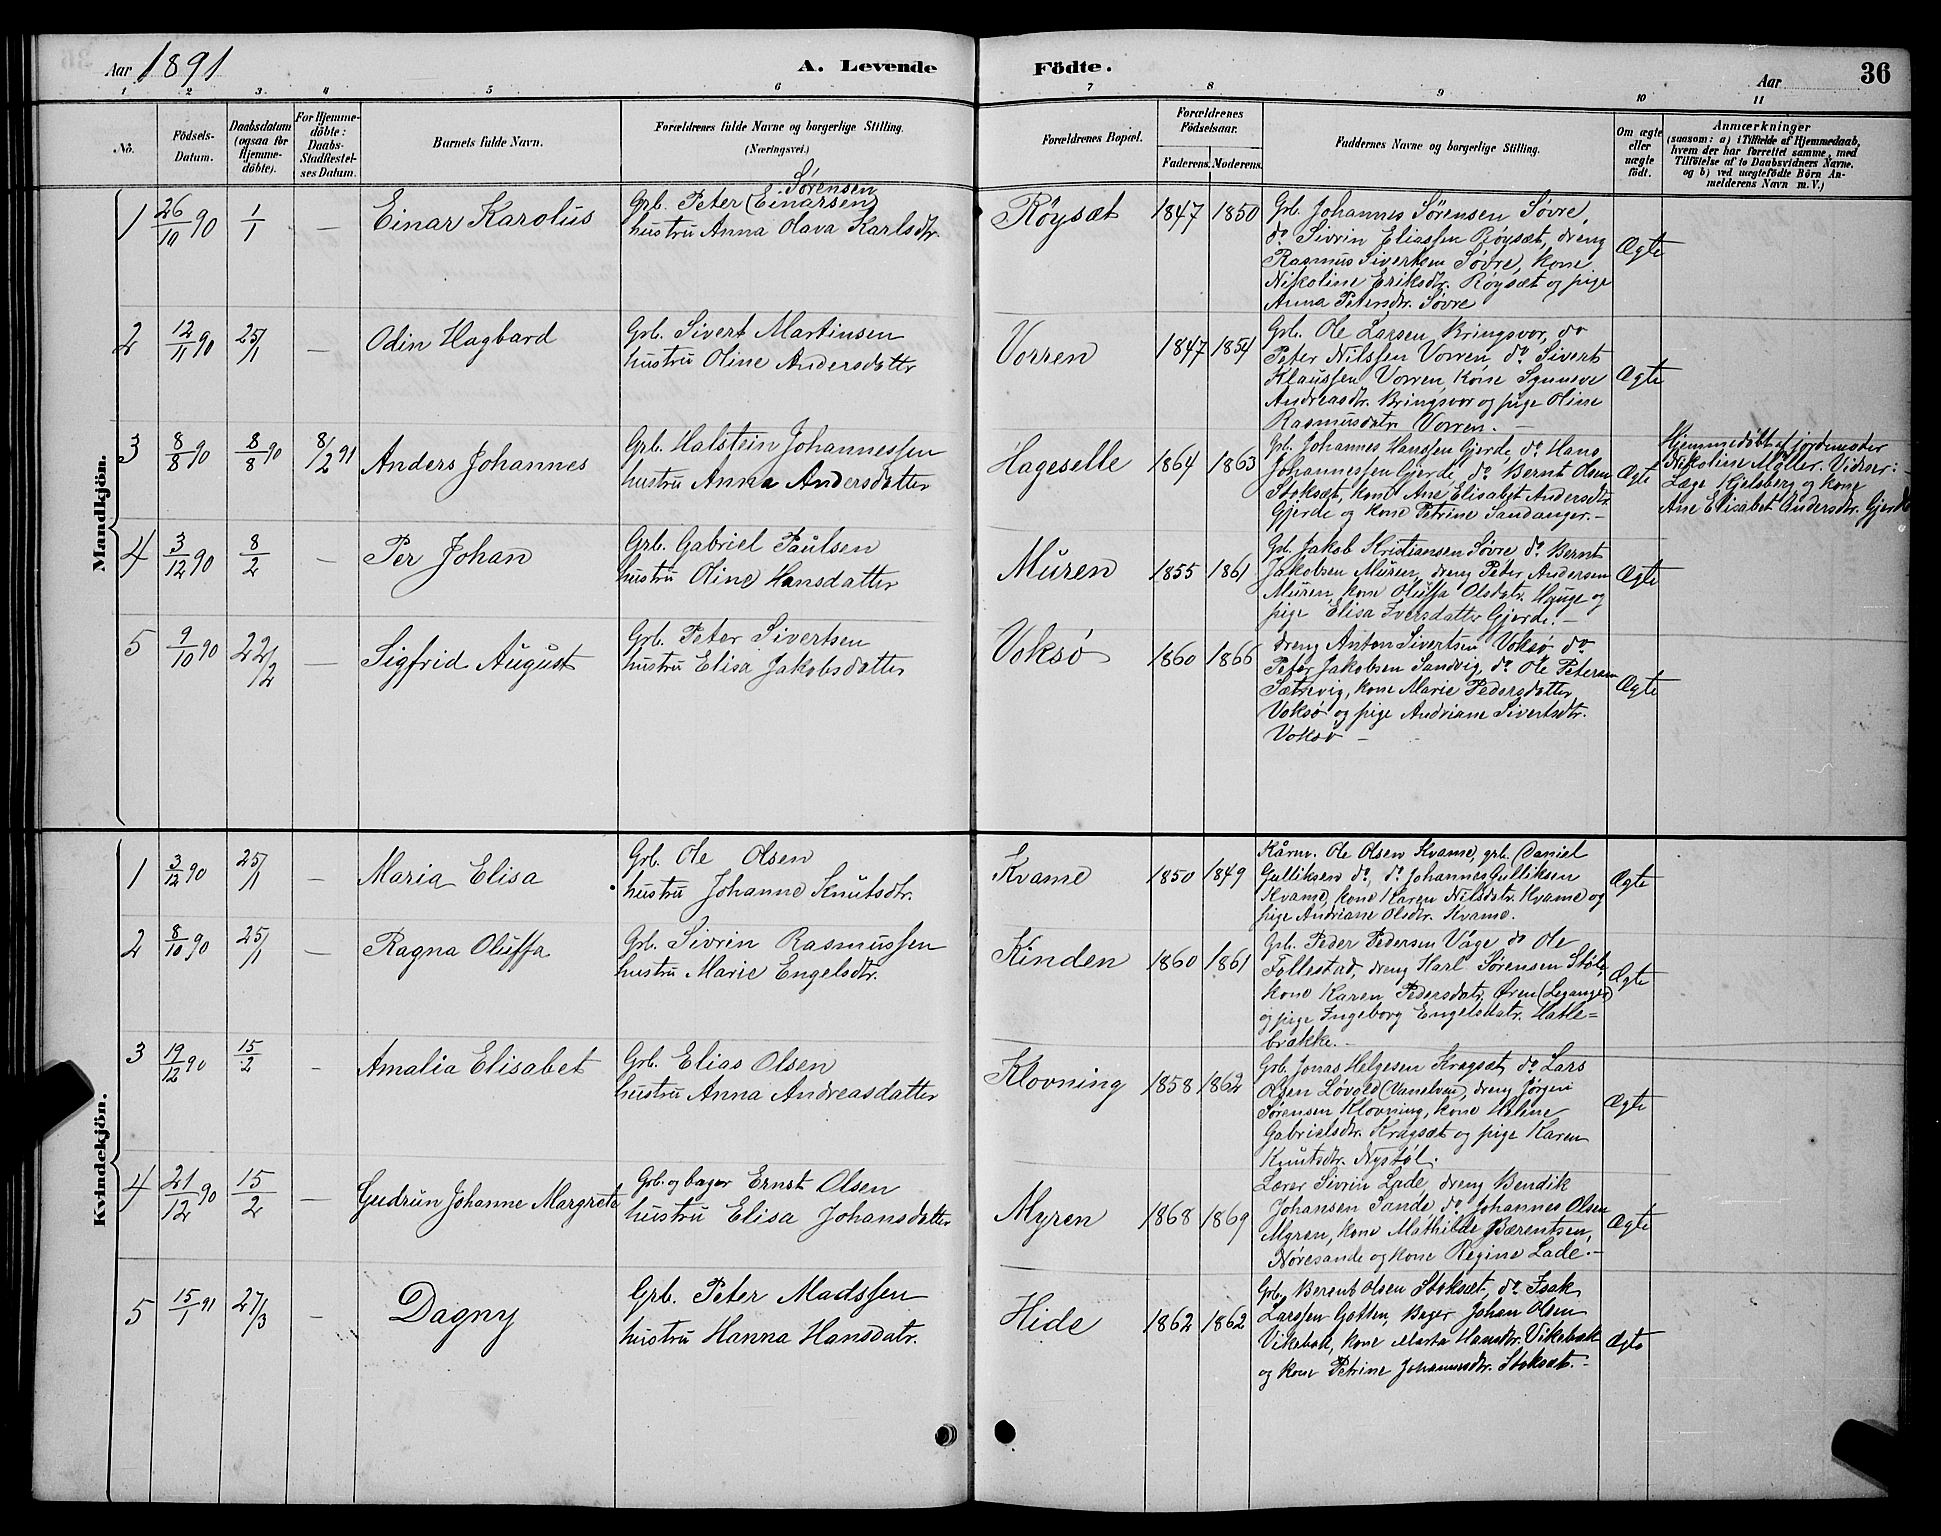 Aar 1891
A. Levende Födte.
Aar
36
1 2 3. 4 5 6 7 8 9 10 11
No.
Födsels-
Datum.
Daabsdatum
(ogsaa for
Hjemme-
döbte).
For Hjemme-
döbte:
Daabs-
Stadfæstel-
ses Datum.
Barnets fulde Navn.
Forældrenes fulde Navne og borgerlige Stilling.
(Næringsvei.)
Forældrenes Bopæl.
Forældrenes
Födselsaar.
Faderens. Moderens.
Faddernes Navne og borgerlige Stilling.
Om ægte
eller
uægte
födt.
Anmærkninger
(saasom: a) i Tilfælde af Hjemmedaab,
hvem der har forrettet samme, med
Tilföielse af to Daabsvidners Navne.
og b) ved uægtefödte Börn An-
melderens Navn m. V.)
Mandkjön.
1 26/10 90 1/1 — Einar Karolus
Sørensen
Grb. Peter (Einarsen)
hustru Anna Olava Karlsdtr.
Røysæt 1847 1850
Grb. Johannes Sørensen Søvre,
do Sivrin Eliassen Røysæt, dreng
Rasmus Sivertsen Søvre, kone
Nikoline Eriksdtr. Røysæt og pige
Anna Petersdtr. Søvre
Ægte
2 12/11 90 25/1 — Odin Hagbard
Grb. Sivert Martinsen
hustru Oline Andersdatter
Vorren 1847 1854
Grb. Ole Larsen Bringsvor, do
Peter Nilssen Vorren, do Sivert
Klaussen Vorren, kone Synneve
Andreasdtr. Bringsvor og pige Oline
Rasmusdatr. Vorren. —
Ægte
3 8/8 90 8/8 90 8/2 91 Anders Johannes
Grb. Halstein Johannessen
hustru Anna Andersdatter
Hageselle 1864 1863
Grb. Johannes Hanssen Gjerde, do Hans
Johannessen Gjerde, do Bernt Olsen
Stoksæt, kone Ane Elisabet Andersdtr.
Gjerde og kone Petrine Sandanger. —
Ægte
Hjemmedøbt af jordemoder
Nikoline Møller. Vidner:
Læge Kjelsberg og kone
Ane Elisabet Andersdtr. Gjerde
4 3/12 90 8/2 — Per Johan
Grb. Gabriel Paulsen
hustru Oline Hansdatter
Muren 1855 1861
Grb. Jakob Kristiansen Søvre, do Bernt
Jakobsen Muren, dreng Peter Andersen
Muren, kone Oluffa Olsdatr. Hauge og
pige Elisa Iversdatter Gjerde. —
Ægte
5 9/10 90 22/2 — Sigfrid August
Grb. Peter Sivertsen
hustru Elisa Jakobsdatter
Voksø 1860 1866
dreng Anton Sivertsen Voksø do
Peter Jakobsen Sandvig, do Ole Petersen
Sætrevig, kone Marie Pedersdatter
Voksø og pige Andriane Sivertsdtr.
Voksø —
Ægte
Kvindekjön.
1 3/12 90 25/1 — Maria Elisa
Grb. Ole Olsen
hustru Johanne Knutsdtr.
Kvame 1850 1849
Kårm. Ole Olsen Kvame, grb. Daniel
Gulliksen do, do Johannes Gulliksen
Kvame, kone Karen Nilsdatr. Kvame og
pige Andriane Olsdtr. Kvame.
Ægte
2 8/10 90 25/1 — Ragna Oluffa
Grb. Sivrin Rasmussen
hustru Marie Engelsdtr.
Kinden 1860 1861
Grb. Peder Pedersen Våge do Ole
Follestad, dreng Karl Sørensen Støle,
kone Karen Pedersdatr. Øren (Leganger)
og pige Ingeborg Engelsdatr. Hatle-
brække. —
Ægte
3 19/12 90 15/2 — Amalia Elisabet
Grb. Elias Olsen
hustru Anna Andreasdatter
Klovning 1858 1862
Grb. Jonas Helgesen Kragsæt, do Lars
Olsen Løvold (Vanelven), dreng Jørgen
Sørensen Klovning, kone Heline
Gabrielsdtr. Kragsæt og pige Karen
Knutsdtr. Nystøl.
Ægte
4 21/12 90 15/2 — Gudrun Johanne Margrete
Grb. og bager Ernst Olsen
hustru Elisa Johansdatter
Myren 1868 1869
Lærer Sivrin Lade, dreng Bendik
Johansen Sande, do Johannes Olsen
Myren, kone Mathilde Bærentsen,
Nøresande og kone Regine Lade. —
Ægte
5 15/1 91 27/3 — Dagny
Grb. Peter Madssen
hustru Hanna Hansdatr.
Hide 1862 1862
Grb. Berent Olsen Stoksæt, do Isak
Larssen Gotten, Bager Johan Olsen
Vikebak, kone Marta Hansdtr. Vikebak
og kone Petrine Johannesdtr. Stoksæt. —
Ægte